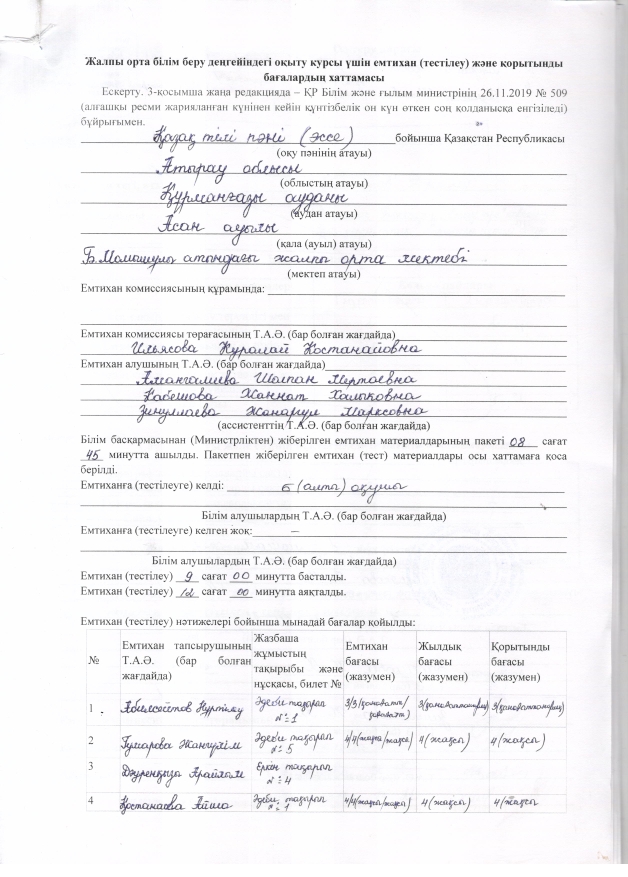 Жалпы орта білім беру деңгейіндегі оқыту курсы үшін емтихан (тестілеу) және қорытынды
бағалардың хаттамасы
Ескерту. 3-қосымша жаңа редакцияда – ҚР Білім және ғылым министрінің 26.11.2019 № 509
(алғашқы ресми жарияланған күнінен кейін күнтізбелік он күн өткен соң қолданысқа енгізіледі)
бұйрығымен.
Қазақ тілі пәні (эссе) бойынша Қазақстан Республикасы
(оқу пәнінің атауы)
Атырау облысы
(облыстың атауы)
Құрманғазы ауданы
(аудан атауы)
Асан ауылы
(қала (ауыл) атауы)
Б.Момышұлы атындағы жалпы орта мектебі
(мектеп атауы)
Емтихан комиссиясының құрамында:
Емтихан комиссиясы төрағасының Т.А.Ә. (бар болған жағдайда)
Ильясова Нуралай Костанайовна
Емтихан алушының Т.А.Ә. (бар болған жағдайда)
Амангалиева Шолпан Мертаевна
Кабешова Жаннат Халыковна
Зинуллаева Жанаргул Марксовна
(ассистенттің Т.А.Ә. (бар болған жағдайда)
Білім басқармасынан (Министрліктен) жіберілген емтихан материалдарының пакеті 08 сағат
45 минутта ашылды. Пакетпен жіберілген емтихан (тест) материалдары осы хаттамаға қоса
берілді.
Емтиханға (тестілеуге) келді: 6 (алты) оқушы
Білім алушылардың Т.А.Ә. (бар болған жағдайда)
Емтиханға (тестілеуге) келген жоқ: –
Білім алушылардың Т.А.Ә. (бар болған жағдайда)
Емтихан (тестілеу) 9 сағат 00 минутта басталды.
Емтихан (тестілеу) 12 сағат 00 минутта аяқталды.
Емтихан (тестілеу) нәтижелері бойынша мынадай бағалар қойылды:
№ Емтихан тапсырушының Т.А.Ә. (бар болған жағдайда) Жазбаша жұмыстың тақырыбы және нұсқасы, билет № Емтихан бағасы (жазумен) Жылдық бағасы (жазумен) Қорытынды бағасы (жазумен)
1 Әдеби тақырып №1 3/3 3 3
2 Гумарова Әдеби тақырып №5 4/4 (жақсы/жақсы) 4 (жақсы) 4 (жақсы)
3 Еркін тақырып №4
4 Костанаева Әдеби тақырып №1 4/4 (жақсы/жақсы) 4 (жақсы) 4 (жақсы